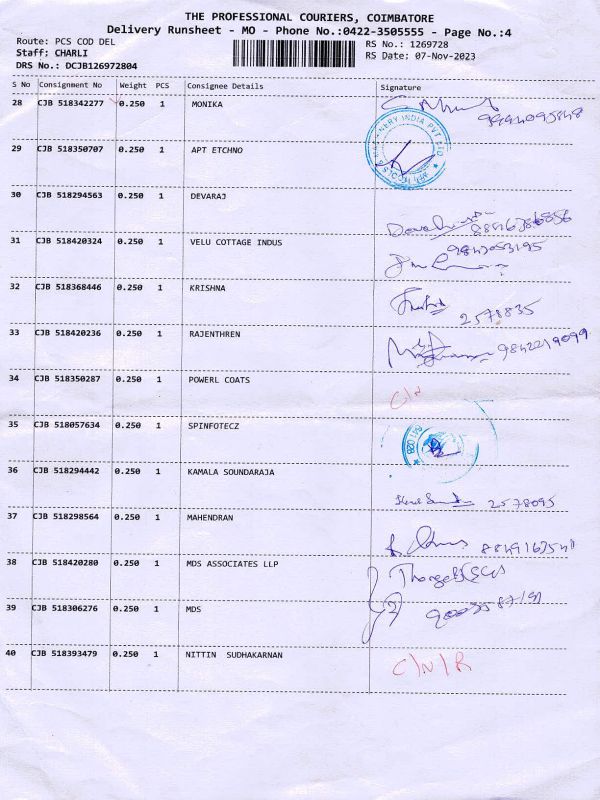 THE PROFESSIONAL COURIERS, COIMBATORE
Delivery Runsheet - MO - Phone No.:0422-3505555 - Page No.:4
Route: PCS COD DEL
RS No.: 1269728
Staff: CHARLI
RS Date: 07-Nov-2023
DRS No.: DCJB126972804
S No Consignment No Weight PCS Consignee Details Signature
28 CJB 518342277 0.250 1 MONIKA
29 CJB 518350707 0.250 1 APT ETCHNO
30 CJB 518294563 0.250 1 DEVARAJ
31 CJB 518420324 0.250 1 VELU COTTAGE INDUS
9842053195
32 CJB 518368446 0.250 1 KRISHNA
2578835
33 CJB 518420236 0.250 1 RAJENTHREN
9842219099
34 CJB 518350287 0.250 1 POWERL COATS
C/N
35 CJB 518057634 0.250 1 SPINFOTECZ
36 CJB 518294442 0.250 1 KAMALA SOUNDARAJA
2578095
37 CJB 518298564 0.250 1 MAHENDRAN
38 CJB 518420280 0.250 1 MDS ASSOCIATES LLP
39 CJB 518306276 0.250 1 MDS
40 CJB 518393479 0.250 1 NITTIN SUDHAKARNAN
C/N/R